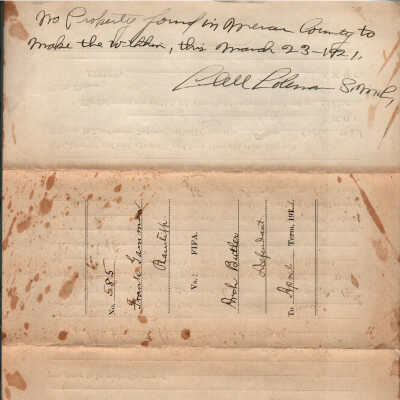 No Property found in Mercer County to
Make the Within, this March 23-1921.
Coleman S.M.C.
No. 585
Frank
Plaintiff
Vs.: FIFA.
Arch Butler
Defendant
To April Term, 192